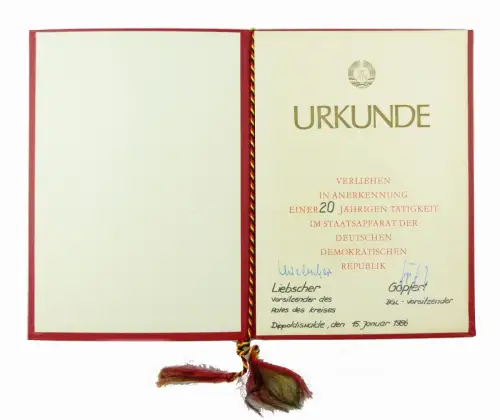 URKUNDE
VERLIEHEN
IN ANERKENNUNG
EINER 20 JÄHRIGEN TÄTIGKEIT
IM STAATSAPPARAT DER
DEUTSCHEN
DEMOKRATISCHEN
REPUBLIK
Liebscher Göpfert
Vorsitzender des BGL-Vorsitzender
Rates des Kreises
Dippoldiswalde, den 15. Januar 1986